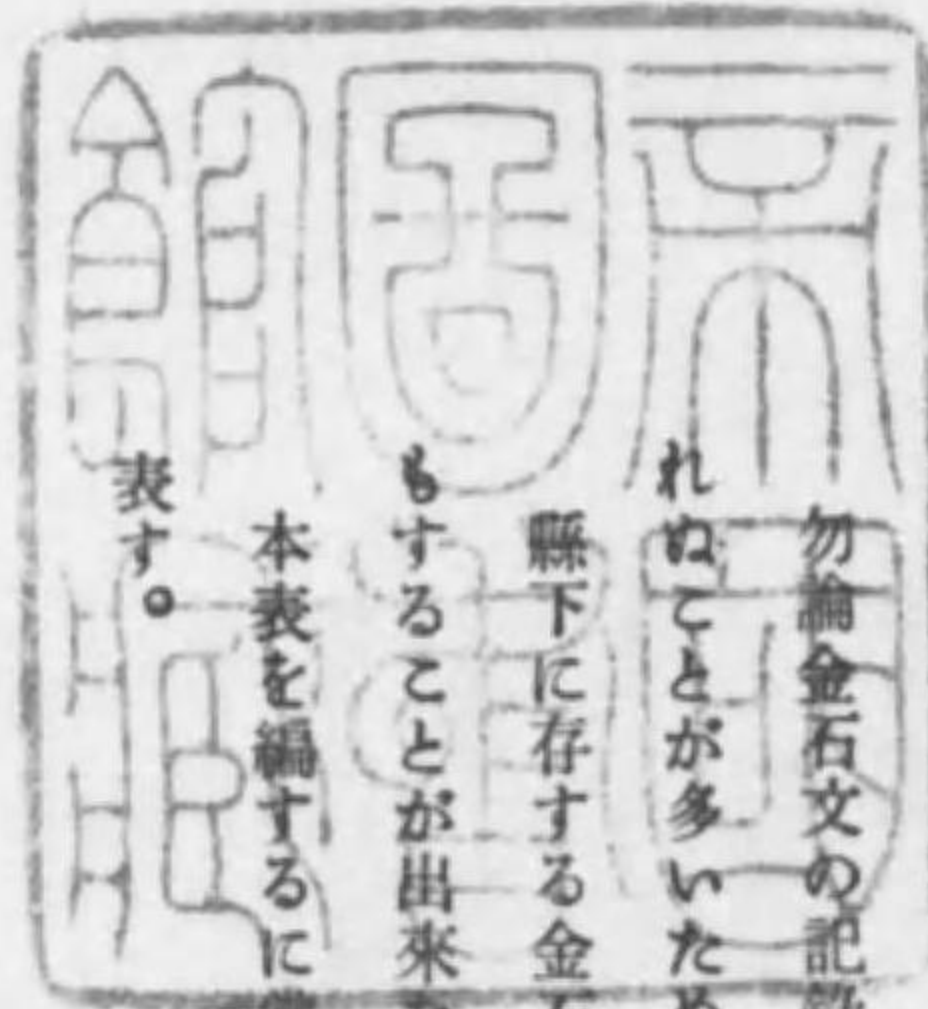 勿論金石文の記
れぬことが多いため
縣下に存する金
もすることが出來
本表を編するに
表す。